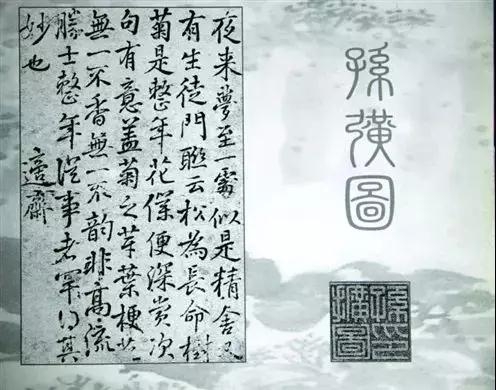 孫彉圖
夜来夢至一處似是精舍又
有生徒門聯云松為長命樹
菊是整年花僕便深賞次
句有意蓋菊之芽葉梗花
無一不香無一不韵非高流
勝士整年從事者罕得其
妙也
適齋